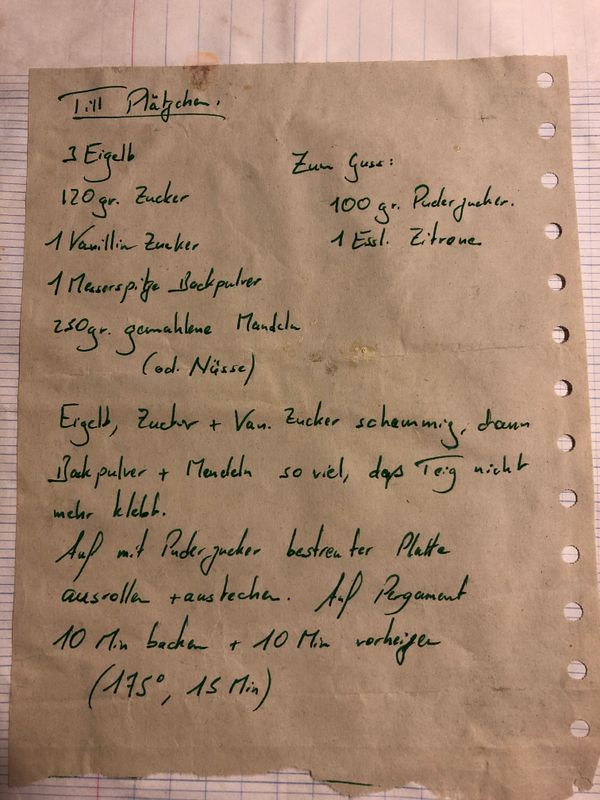 Till Plätzchen.
3 Eigelb
120 gr. Zucker
1 Vanillin Zucker
1 Messerspitze Backpulver
250 gr. gemahlene Mandeln
(od. Nüsse)
Zum Guss:
100 gr. Puderzucker.
1 Essl. Zitrone
Eigelb, Zucker + Van. Zucker schaumig, dann
Backpulver + Mandeln so viel, daß Teig nicht
mehr klebt.
Auf mit Puderzucker bestreuter Platte
ausrollen + austechen. Auf Pergament
10 Min backen + 10 Min vorheizen
(175°, 15 Min)